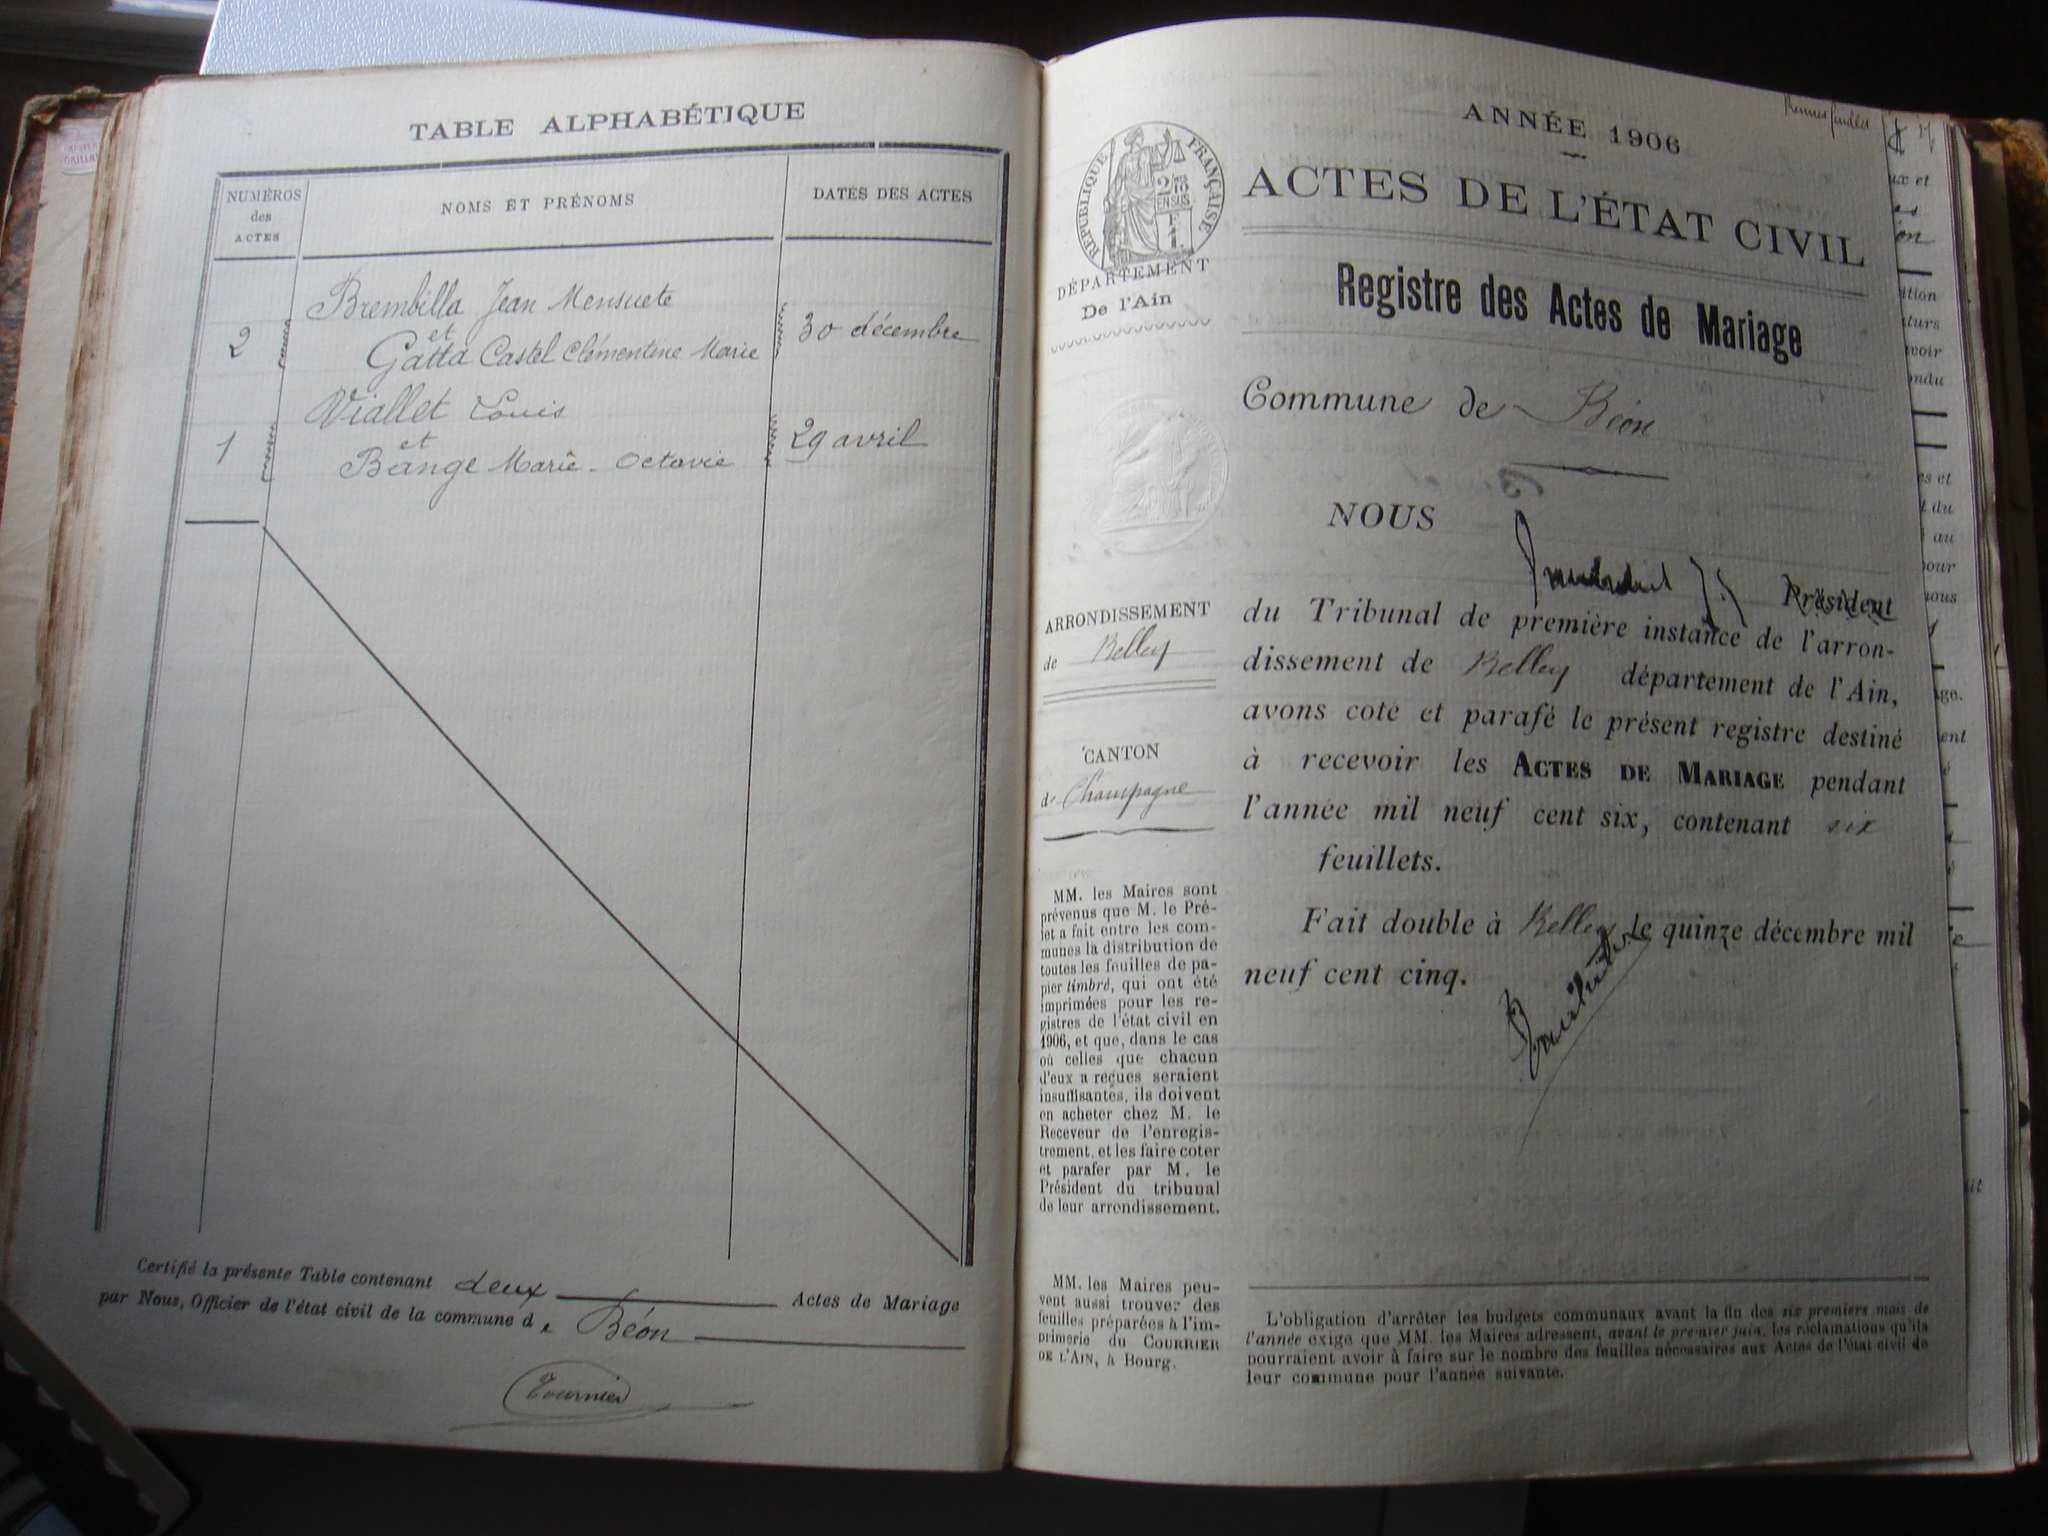 TABLE ALPHABÉTIQUE
NUMÉROS
des
ACTES
NOMS ET PRÉNOMS
DATES DES ACTES
Brembilla Jean Mensuete
et
2
30 décembre
Gatta Castel Clémentine Marie
Viallet Louis
et
1
29 avril
Bange Marie - Octavie
Certifié la présente Table contenant deux Actes de Mariage
par Nous, Officier de l'état civil de la commune de Béon
Tournier
ANNÉE 1906
ACTES DE L'ÉTAT CIVIL
Registre des Actes de Mariage
Commune de Béon
RÉPUBLIQUE FRANÇAISE
DÉPARTEMENT
De l'Ain
ARRONDISSEMENT
de Belley
CANTON
de Champagne
MM. les Maires sont
prévenus que M. le Pré-
fet a fait entre les com-
munes la distribution de
toutes les feuilles de pa-
pier timbré, qui ont été
imprimées pour les re-
gistres de l'état civil en
1906, et que, dans le cas
où celles que chacun
d'eux a reçues seraient
insuffisantes, ils doivent
en acheter chez M. le
Receveur de l'enregis-
trement, et les faire coter
et parafer par M. le
Président du tribunal
de leur arrondissement.
MM. les Maires peu-
vent aussi trouver des
feuilles préparées à l'im-
primerie du COURRIER
DE L'AIN, à Bourg.
NOUS
Président
du Tribunal de première instance de l'arron-
dissement de Belley département de l'Ain,
avons coté et parafé le présent registre destiné
à recevoir les ACTES DE MARIAGE pendant
l'année mil neuf cent six, contenant six
feuillets.
Fait double à Belley le quinze décembre mil
neuf cent cinq.
L'obligation d'arrêter les budgets communaux avant la fin des six premiers mois de
l'année exige que MM. les Maires adressent, avant le premier juin, les réclamations qu'ils
pourraient avoir à faire sur le nombre des feuilles nécessaires aux Actes de l'état civil de
leur commune pour l'année suivante.